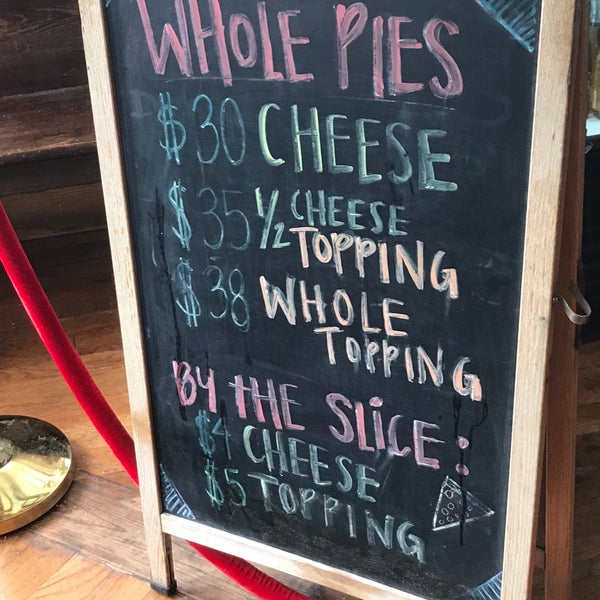 WHOLE PIES
$30 CHEESE
$35 ½ CHEESE
TOPPING
$38 WHOLE
TOPPING
BY THE SLiCE:
$4 CHEESE
$5 TOPPING